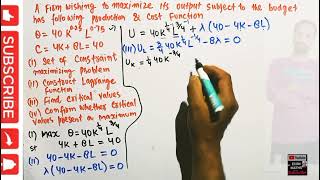 A firm wishing to maximize its output subject to the budget
has following production & cost function
Q = 40K^0.25 L^0.75
C = 4K + 8L = 40
(i) Set of Constraint maximizing problem
(ii) Construct Lagrange function
(iii) Find Critical values
(iv) Confirm whether critical values present a maximum
(i) MAX Q = 40K^¼ L^¾
st 4K + 8L = 40
(ii) 40 - 4K - 8L = 0
λ(40 - 4K - 8L) = 0
U = 40K^¼ L^¾ + λ(40 - 4K - 8L)
(iii) U_L = ¾ 40K^¼ L^-¼ - 8λ = 0
U_K = ¼ 40K^-¾